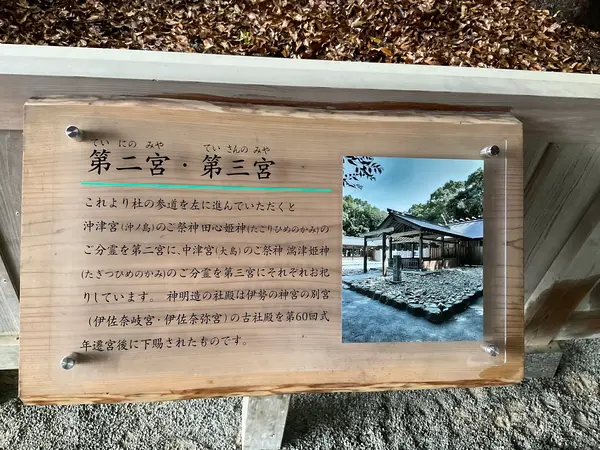 てい にの みや　てい さんの みや
第二宮・第三宮
これより杜の参道を左に進んでいただくと
沖津宮(沖ノ島)のご祭神田心姫神(たごりひめのかみ)の
ご分霊を第二宮に、中津宮(大島)のご祭神 湍津姫神
(たぎつひめのかみ)のご分霊を第三宮にそれぞれお祀
りしています。 神明造の社殿は伊勢の神宮の別宮
(伊佐奈岐宮・伊佐奈弥宮)の古社殿を第60回式
年遷宮後に下賜されたものです。